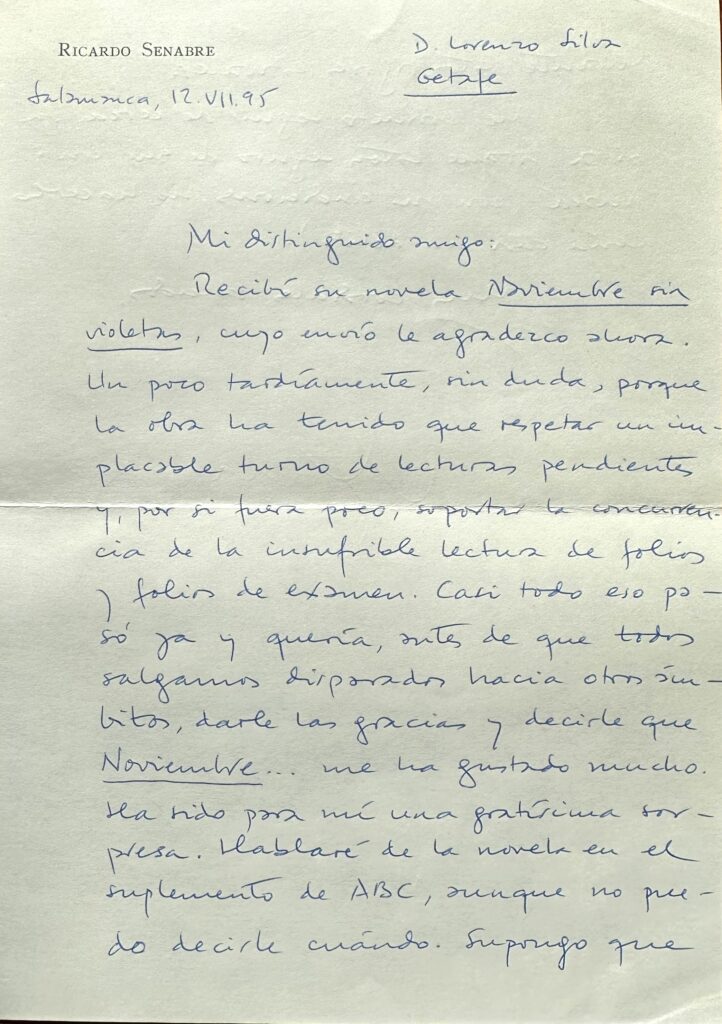 RICARDO SENABRE
D. Lorenzo Silva
Getafe
Salamanca, 12.VII.95
Mi distinguido amigo:
Recibí su novela Noviembre sin
violetas, cuyo envío le agradezco ahora.
Un poco tardíamente, sin duda, porque
la obra ha tenido que respetar un im-
placable turno de lecturas pendientes
y, por si fuera poco, soportar la concurren-
cia de la insufrible lectura de folios
y folios de examen. Casi todo eso pa-
só ya y quería, antes de que todos
salgamos disparados hacia otros ám-
bitos, darle las gracias y decirle que
Noviembre... me ha gustado mucho.
Ha sido para mí una gratísima sor-
presa. Hablaré de la novela en el
suplemento de ABC, aunque no pue-
do decirle cuándo. Supongo que